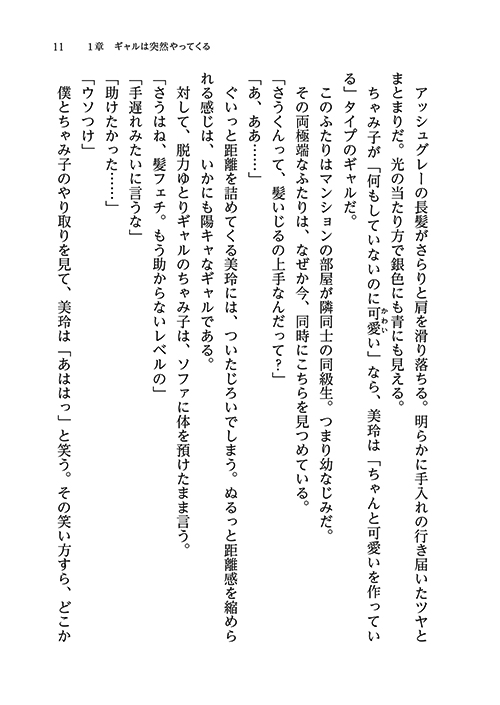 11　1章　ギャルは突然やってくる
アッシュグレーの長髪がさらりと肩を滑り落ちる。明らかに手入れの行き届いたツヤと
まとまりだ。光の当たり方で銀色にも青にも見える。
ちゃみ子が「何もしていないのに可愛い」なら、美玲は「ちゃんと可愛いを作ってい
かわい
る」タイプのギャルだ。
このふたりはマンションの部屋が隣同士の同級生。つまり幼なじみだ。
その両極端なふたりは、なぜか今、同時にこちらを見つめている。
「さうくんって、髪いじるの上手なんだって？」
「あ、ああ……」
ぐいっと距離を詰めてくる美玲には、ついたじろいでしまう。ぬるっと距離感を縮めら
れる感じは、いかにも陽キャなギャルである。
対して、脱力ゆとりギャルのちゃみ子は、ソファに体を預けたまま言う。
「さうはね、髪フェチ。もう助からないレベルの」
「手遅れみたいに言うな」
「助けたかった……」
「ウソつけ」
僕とちゃみ子のやり取りを見て、美玲は「あははっ」と笑う。その笑い方すら、どこか